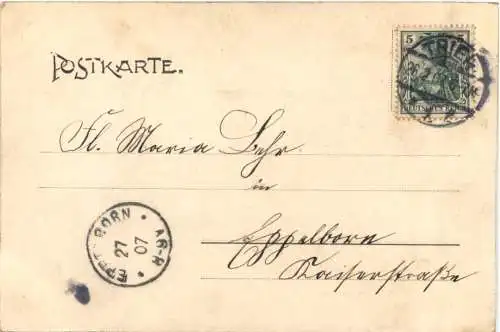 POSTKARTE.
5
TRIER
Fl. Maria Behr
in
Eppelborn
Kaiserstraße
EPPELBORN
27
07